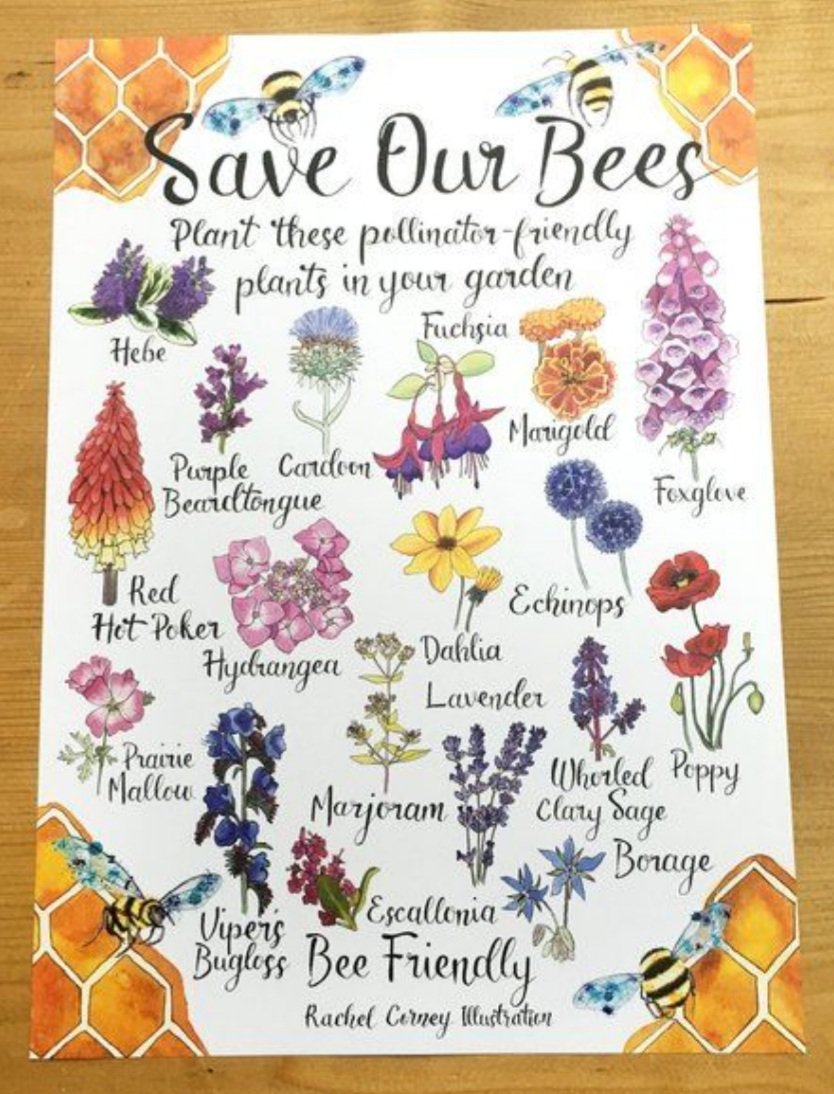 Save Our Bees
Plant these pollinator-friendly
plants in your garden
Hebe
Fuchsia
Marigold
Purple
Beardtongue
Cardoon
Foxglove
Red
Hot Poker
Hydrangea
Dahlia
Echinops
Lavender
Prairie
Mallow
Marjoram
Whorled
Clary Sage
Poppy
Borage
Viper's
Bugloss
Escallonia
Bee Friendly
Rachel Corney Illustration